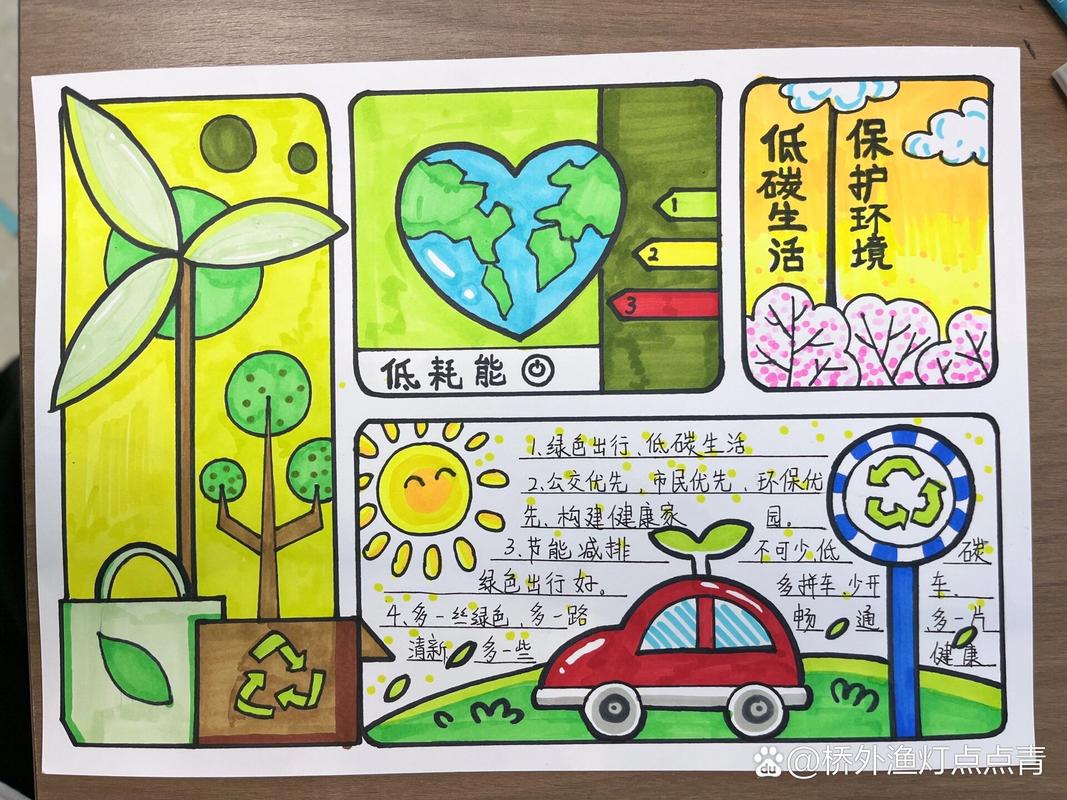 低碳生活
保护环境
1
2
3
低耗能
1.绿色出行、低碳生活
2.公交优先、市民优先、环保优
先、构建健康家 园。
3.节能减排 不可少,低 碳
绿色出行好。 多拼车,少开 车.
4、多一丝绿色、多一路 畅 通 多一片
清新 多一些 健康
@桥外渔灯点点青